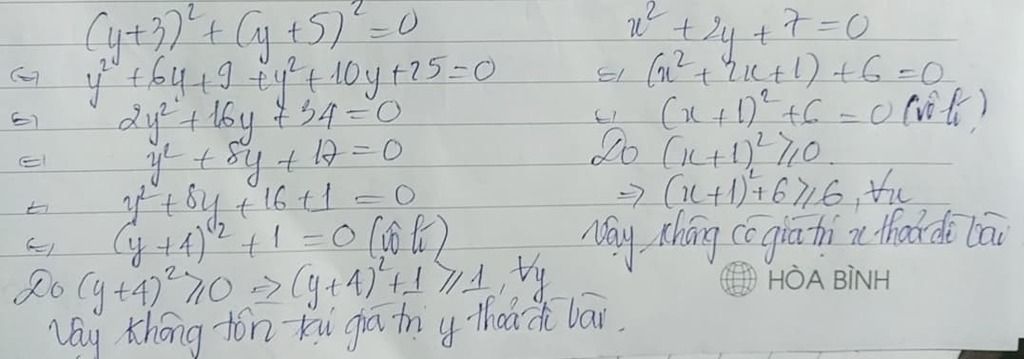 (y+3)² + (y+5)² = 0
⇔ y² + 6y + 9 + y² + 10y + 25 = 0
⇔ 2y² + 16y + 34 = 0
⇔ y² + 8y + 17 = 0
⇔ y² + 8y + 16 + 1 = 0
⇔ (y+4)² + 1 = 0 (vô lí)
Do (y+4)² ⩾ 0 ⇒ (y+4)² + 1 ⩾ 1, ∀y
Vậy không tồn tại giá trị y thoả đề bài.
x² + 2y + 7 = 0
⇔ (x² + 2x + 1) + 6 = 0
⇔ (x+1)² + 6 = 0 (vô lí)
Do (x+1)² ⩾ 0.
⇒ (x+1)² + 6 ⩾ 6, ∀x
Vậy không có giá trị x thoả đề bài
HÒA BÌNH